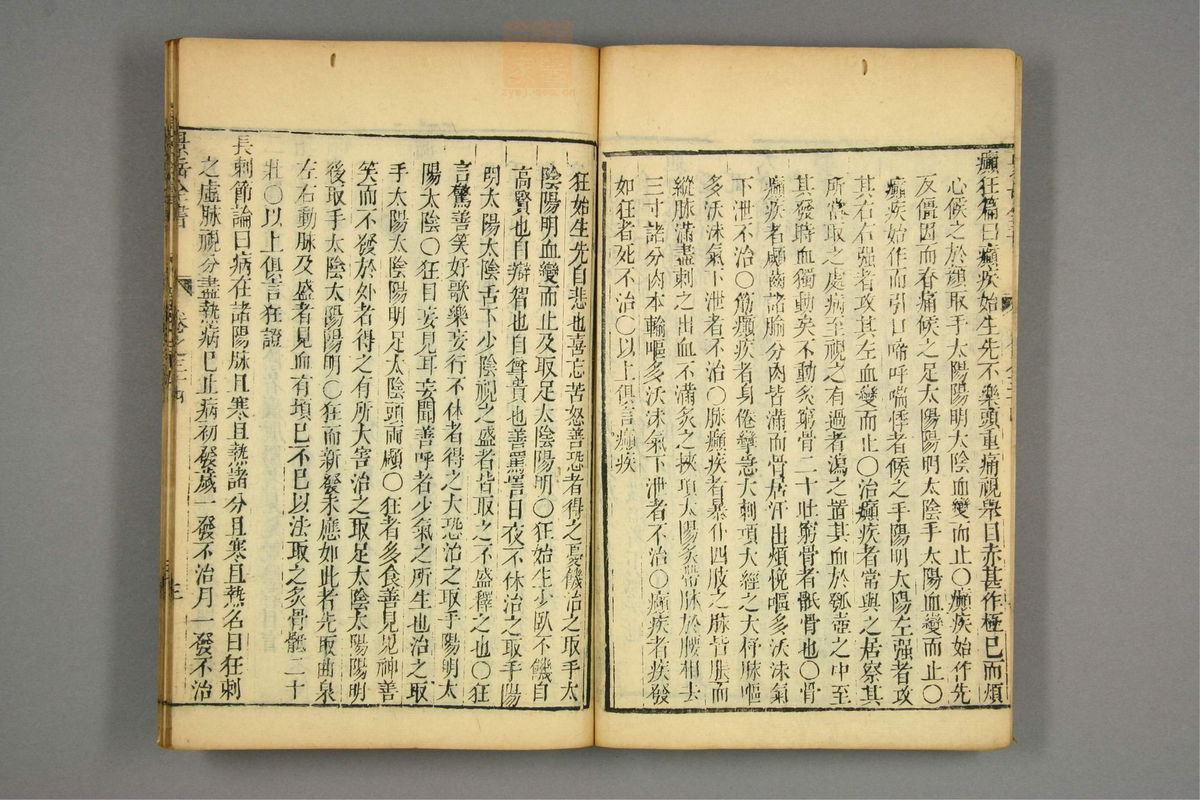 癲狂篇曰癲疾始生先不樂頭重痛視舉目赤甚作極已而煩
心候之於顏取手太陽陽明太陰血變而止○癲疾始作先
反僵因而脊痛候之足太陽陽明太陰手太陽血變而止○
癲疾始作而引口啼呼喘悸者候之手陽明太陽左强者攻
其右右强者攻其左血變而止○治癲疾者當與之居察其
所當取之處病至視之有過者瀉之置其血於瓠壺之中至
其發時血獨動矣不動灸窮骨二十壯窮骨者骶骨也○骨
癲疾者顑齒諸腧分肉皆滿而骨居汗出煩悗嘔多沃沫氣
下泄不治○筋癲疾者身倦攣急大刺項大經之大杼脉嘔
多沃沫氣下泄者不治○脉癲疾者暴仆四肢之脉皆脹而
縱脉滿盡刺之出血不滿灸之挾項太陽灸帶脉於腰相去
三寸諸分肉本輸嘔多沃沫氣下泄者不治○癲疾者疾發
如狂者死不治○以上俱言癲疾
狂始生先自悲也喜忘苦怒善恐者得之憂饑治之取手太
陰陽明血變而止及取足太陰陽明○狂始生少臥不饑自
高賢也自辯智也自尊貴也善罵詈日夜不休治之取手陽
明太陽太陰舌下少陰視之盛者皆取之不盛釋之也○狂
言驚善笑好歌樂妄行不休者得之大恐治之取手陽明太
陽太陰○狂目妄見耳妄聞善呼者少氣之所生也治之取
手太陽太陰陽明足太陰頭兩顑○狂者多食善見鬼神善
笑而不發於外者得之有所大喜治之取足太陰太陽陽明
後取手太陰太陽陽明○狂而新發未應如此者先取曲泉
左右動脉及盛者見血有頃已不已以法取之灸骨骶二十
壯○以上俱言狂證
長刺節論曰病在諸陽脉且寒且熱諸分且寒且熱名曰狂刺
之虛脉視分盡熱病已止病初發歲一發不治月一發不治
景岳全書 卷之三十四